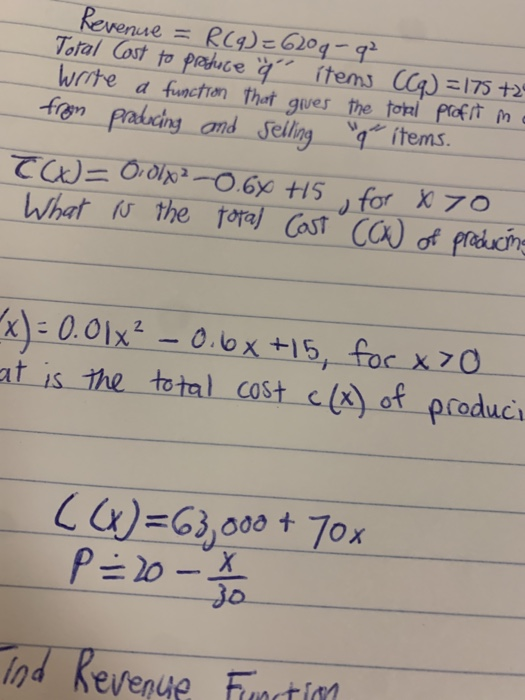 Revenue = R(q)=620q-q²
Total Cost to produce "q" items C(q) = 175 +2
Write a function that gives the total profit in
from producing and selling "q" items.
C̅(x)= 0.01x²-0.6x +15, for x>0
What is the total Cost C(x) of producing
(x) = 0.01x² - 0.6x +15, for x>0
at is the total cost c(x) of produci
C(x)=63,000 + 70x
P = 20 - x/30
Find Revenue Function